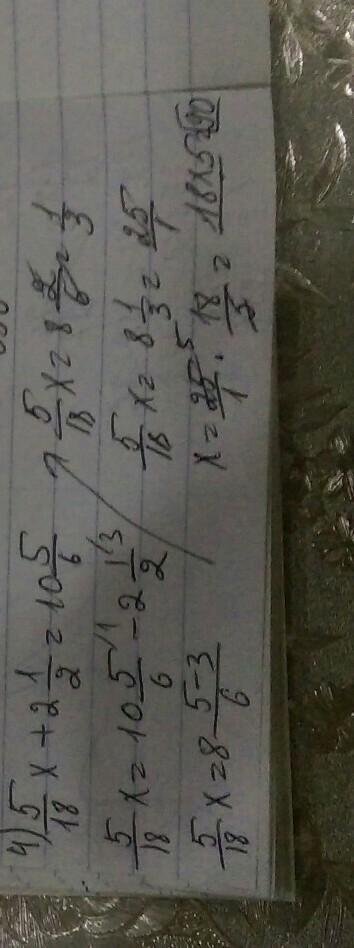 4) 5/18 x + 2 1/2 = 10 5/6
5/18 x = 10 5/6 \1 - 2 1/2 \3
5/18 x = 8 5-3/6
5/18 x = 8 2/6 = 1/3
5/18 x = 8 1/3 = 25/1
x = 25/1 5 · 18/5 = 18x5=90